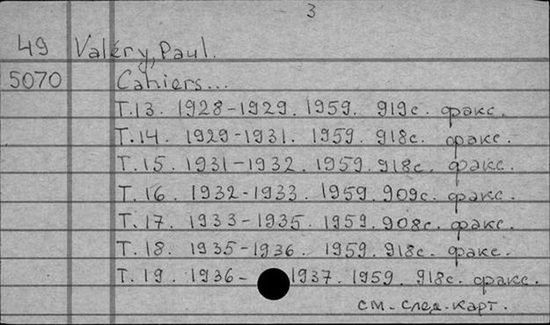 3
49 Valéry, Paul.
5070 Cahiers...
Т.13. 1928-1929. 1959. 919с. факс.
Т.14. 1929-1931. 1959. 918с. факс.
Т.15. 1931-1932. 1959. 918с. факс.
Т.16. 1932-1933. 1959. 909с. факс.
Т.17. 1933-1935. 1959. 908с. факс.
Т.18. 1935-1936. 1959. 918с. факс.
Т.19. 1936-1937. 1959. 918с. факс.
см. след. карт.